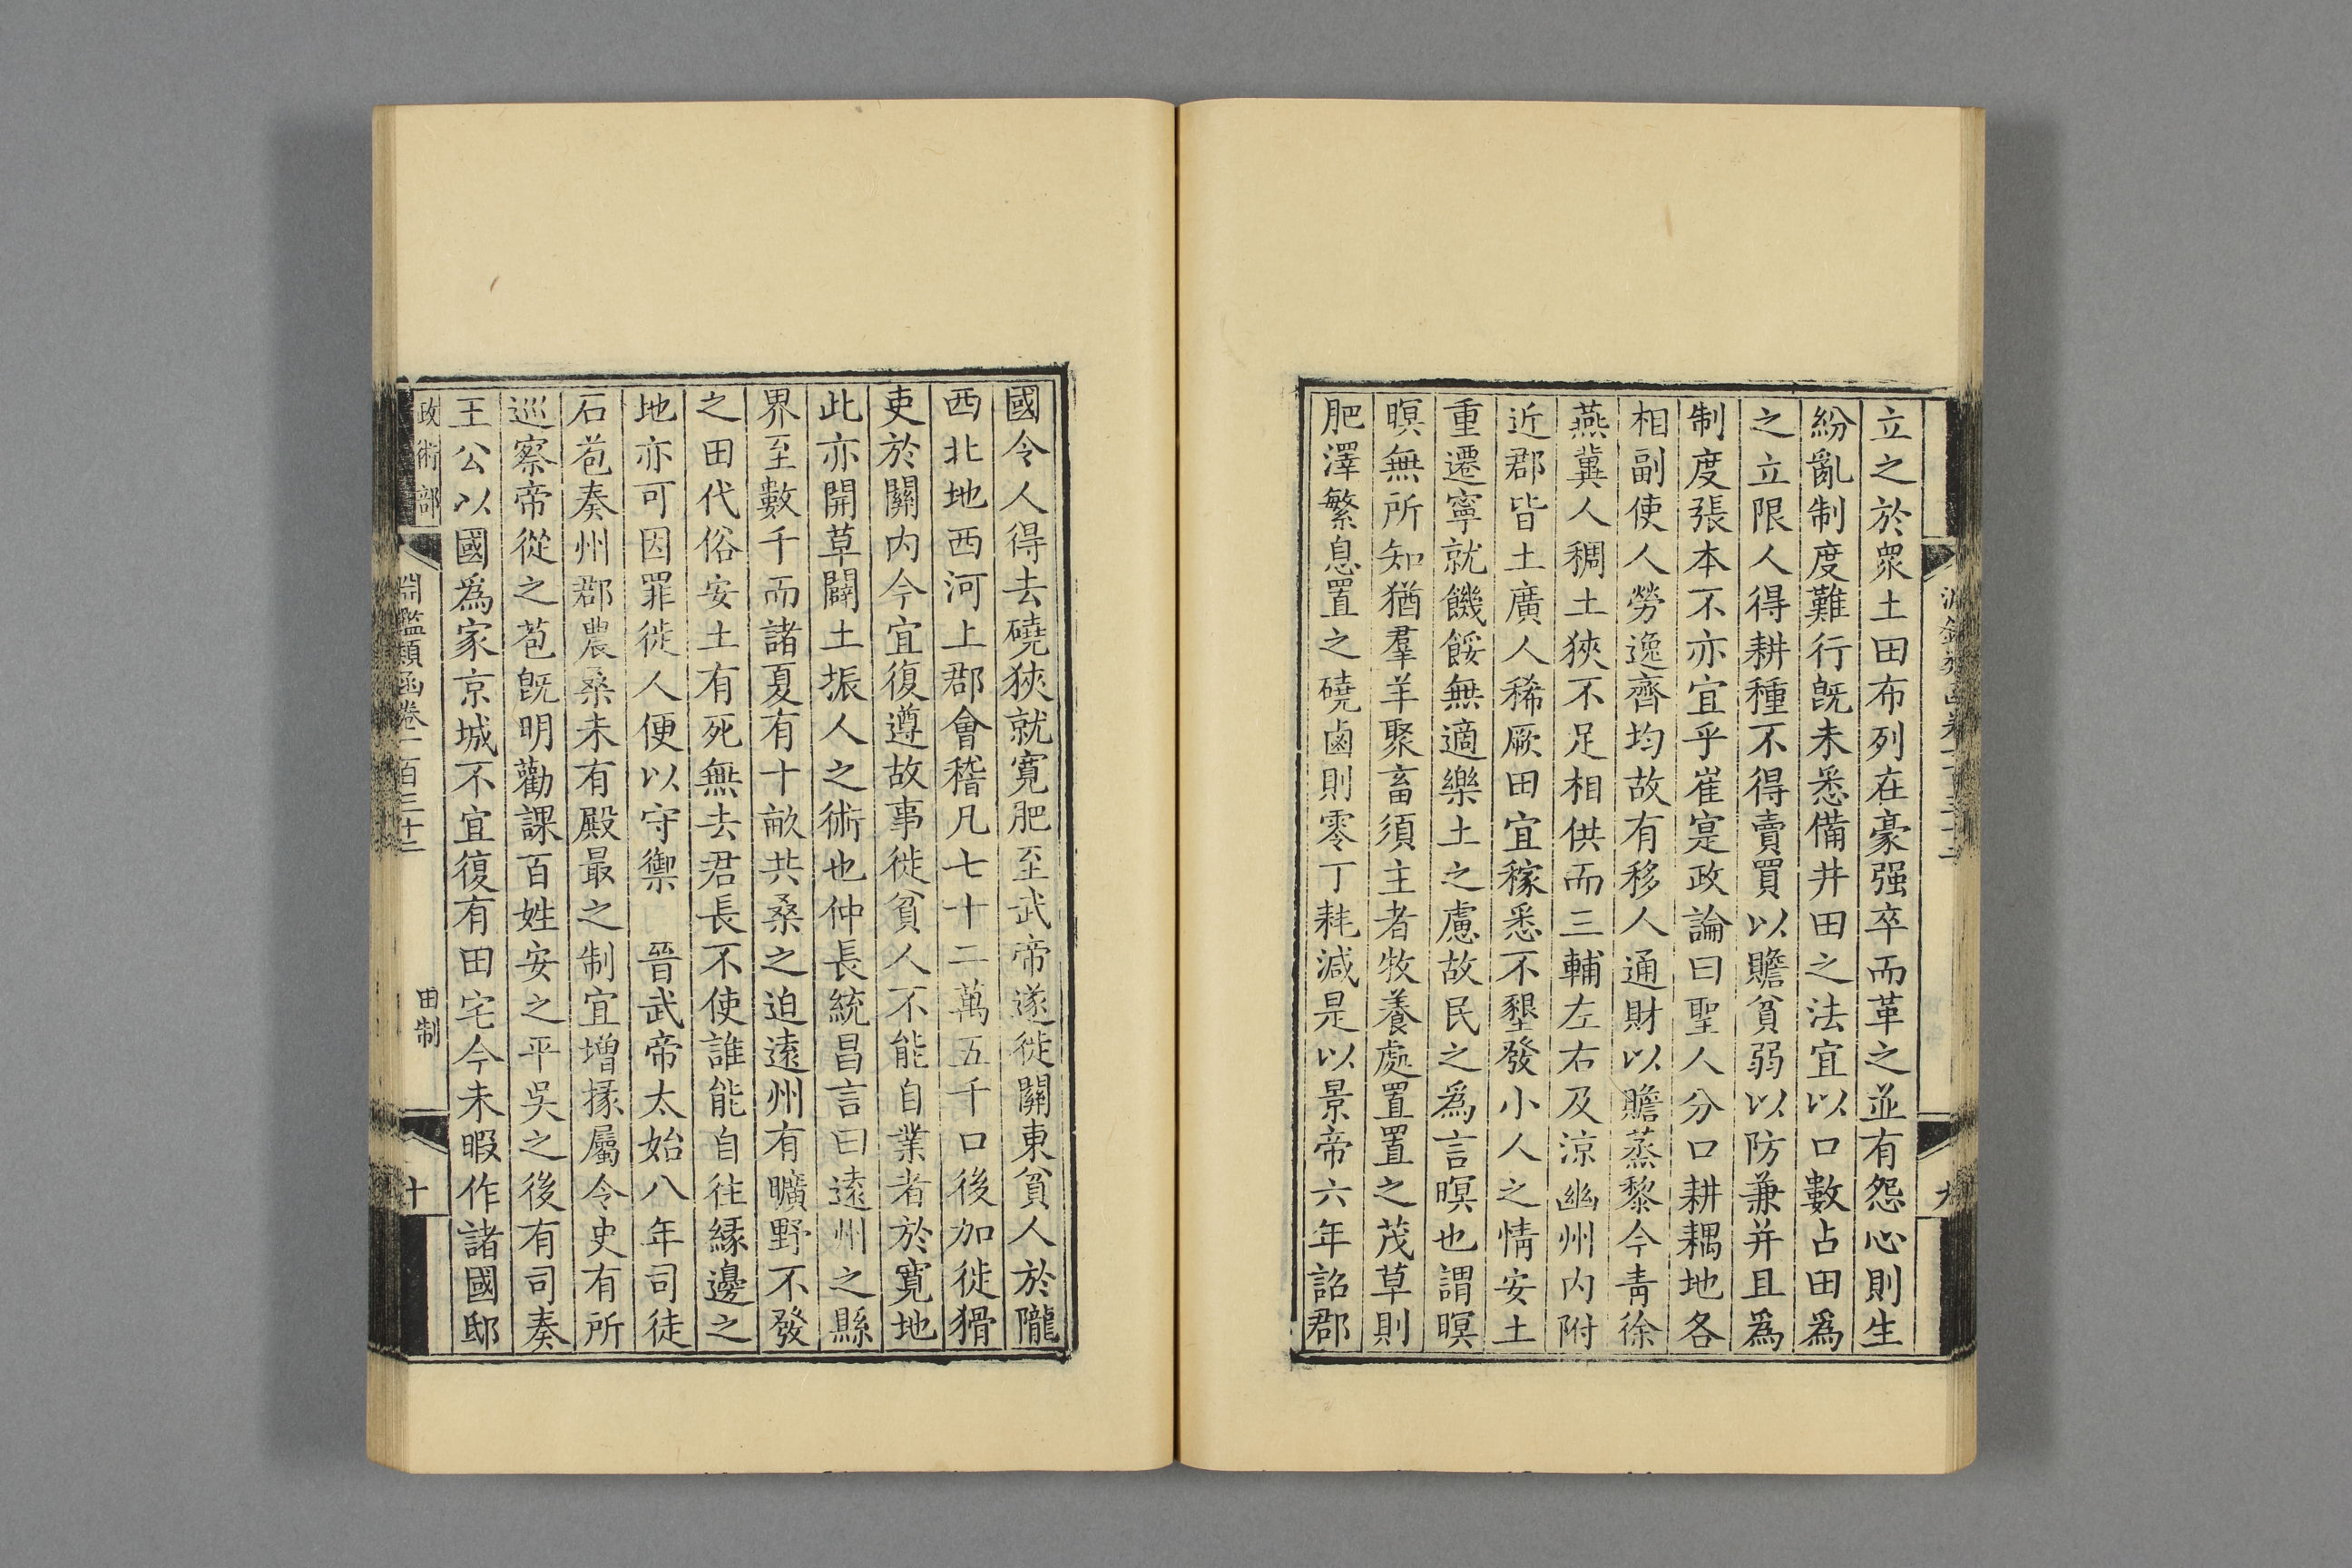 立之於眾土田布列在豪强卒而革之並有怨心則生
紛亂制度難行旣未悉備井田之法宜以口數占田爲
之立限人得耕種不得賣買以贍貧弱以防兼并且爲
制度張本不亦宜乎崔寔政論曰聖人分口耕耦地各
相副使人勞逸齊均故有移人通財以贍蒸黎今青徐
燕冀人稠土狹不足相供而三輔左右及涼幽州内附
近郡皆土廣人稀厥田宜稼悉不墾發小人之情安土
重遷寧就饑餒無適樂土之慮故民之爲言暝也謂暝
暝無所知猶羣羊聚畜須主者牧養處置置之茂草則
肥澤繁息置之磽鹵則零丁耗減是以景帝六年詔郡
九
國令人得去磽狹就寛肥至武帝遂徙關東貧人於隴
西北地西河上郡會稽凡七十二萬五千口後加徙猾
吏於關内今宜復遵故事徙貧人不能自業者於寛地
此亦開草闢土振人之術也仲長統昌言曰逺州之縣
界至數千而諸夏有十畝共桑之迫逺州有曠野不發
之田代俗安土有死無去君長不使誰能自往緣邊之
地亦可因罪徙人便以守禦　晉武帝太始八年司徒
石苞奏州郡農桑未有殿最之制宜增掾屬令史有所
巡察帝從之苞旣明勸課百姓安之平吳之後有司奏
王公以國爲家京城不宜復有田宅今未暇作諸國邸
政術部
淵鑑類函卷一百三十二
田制
十